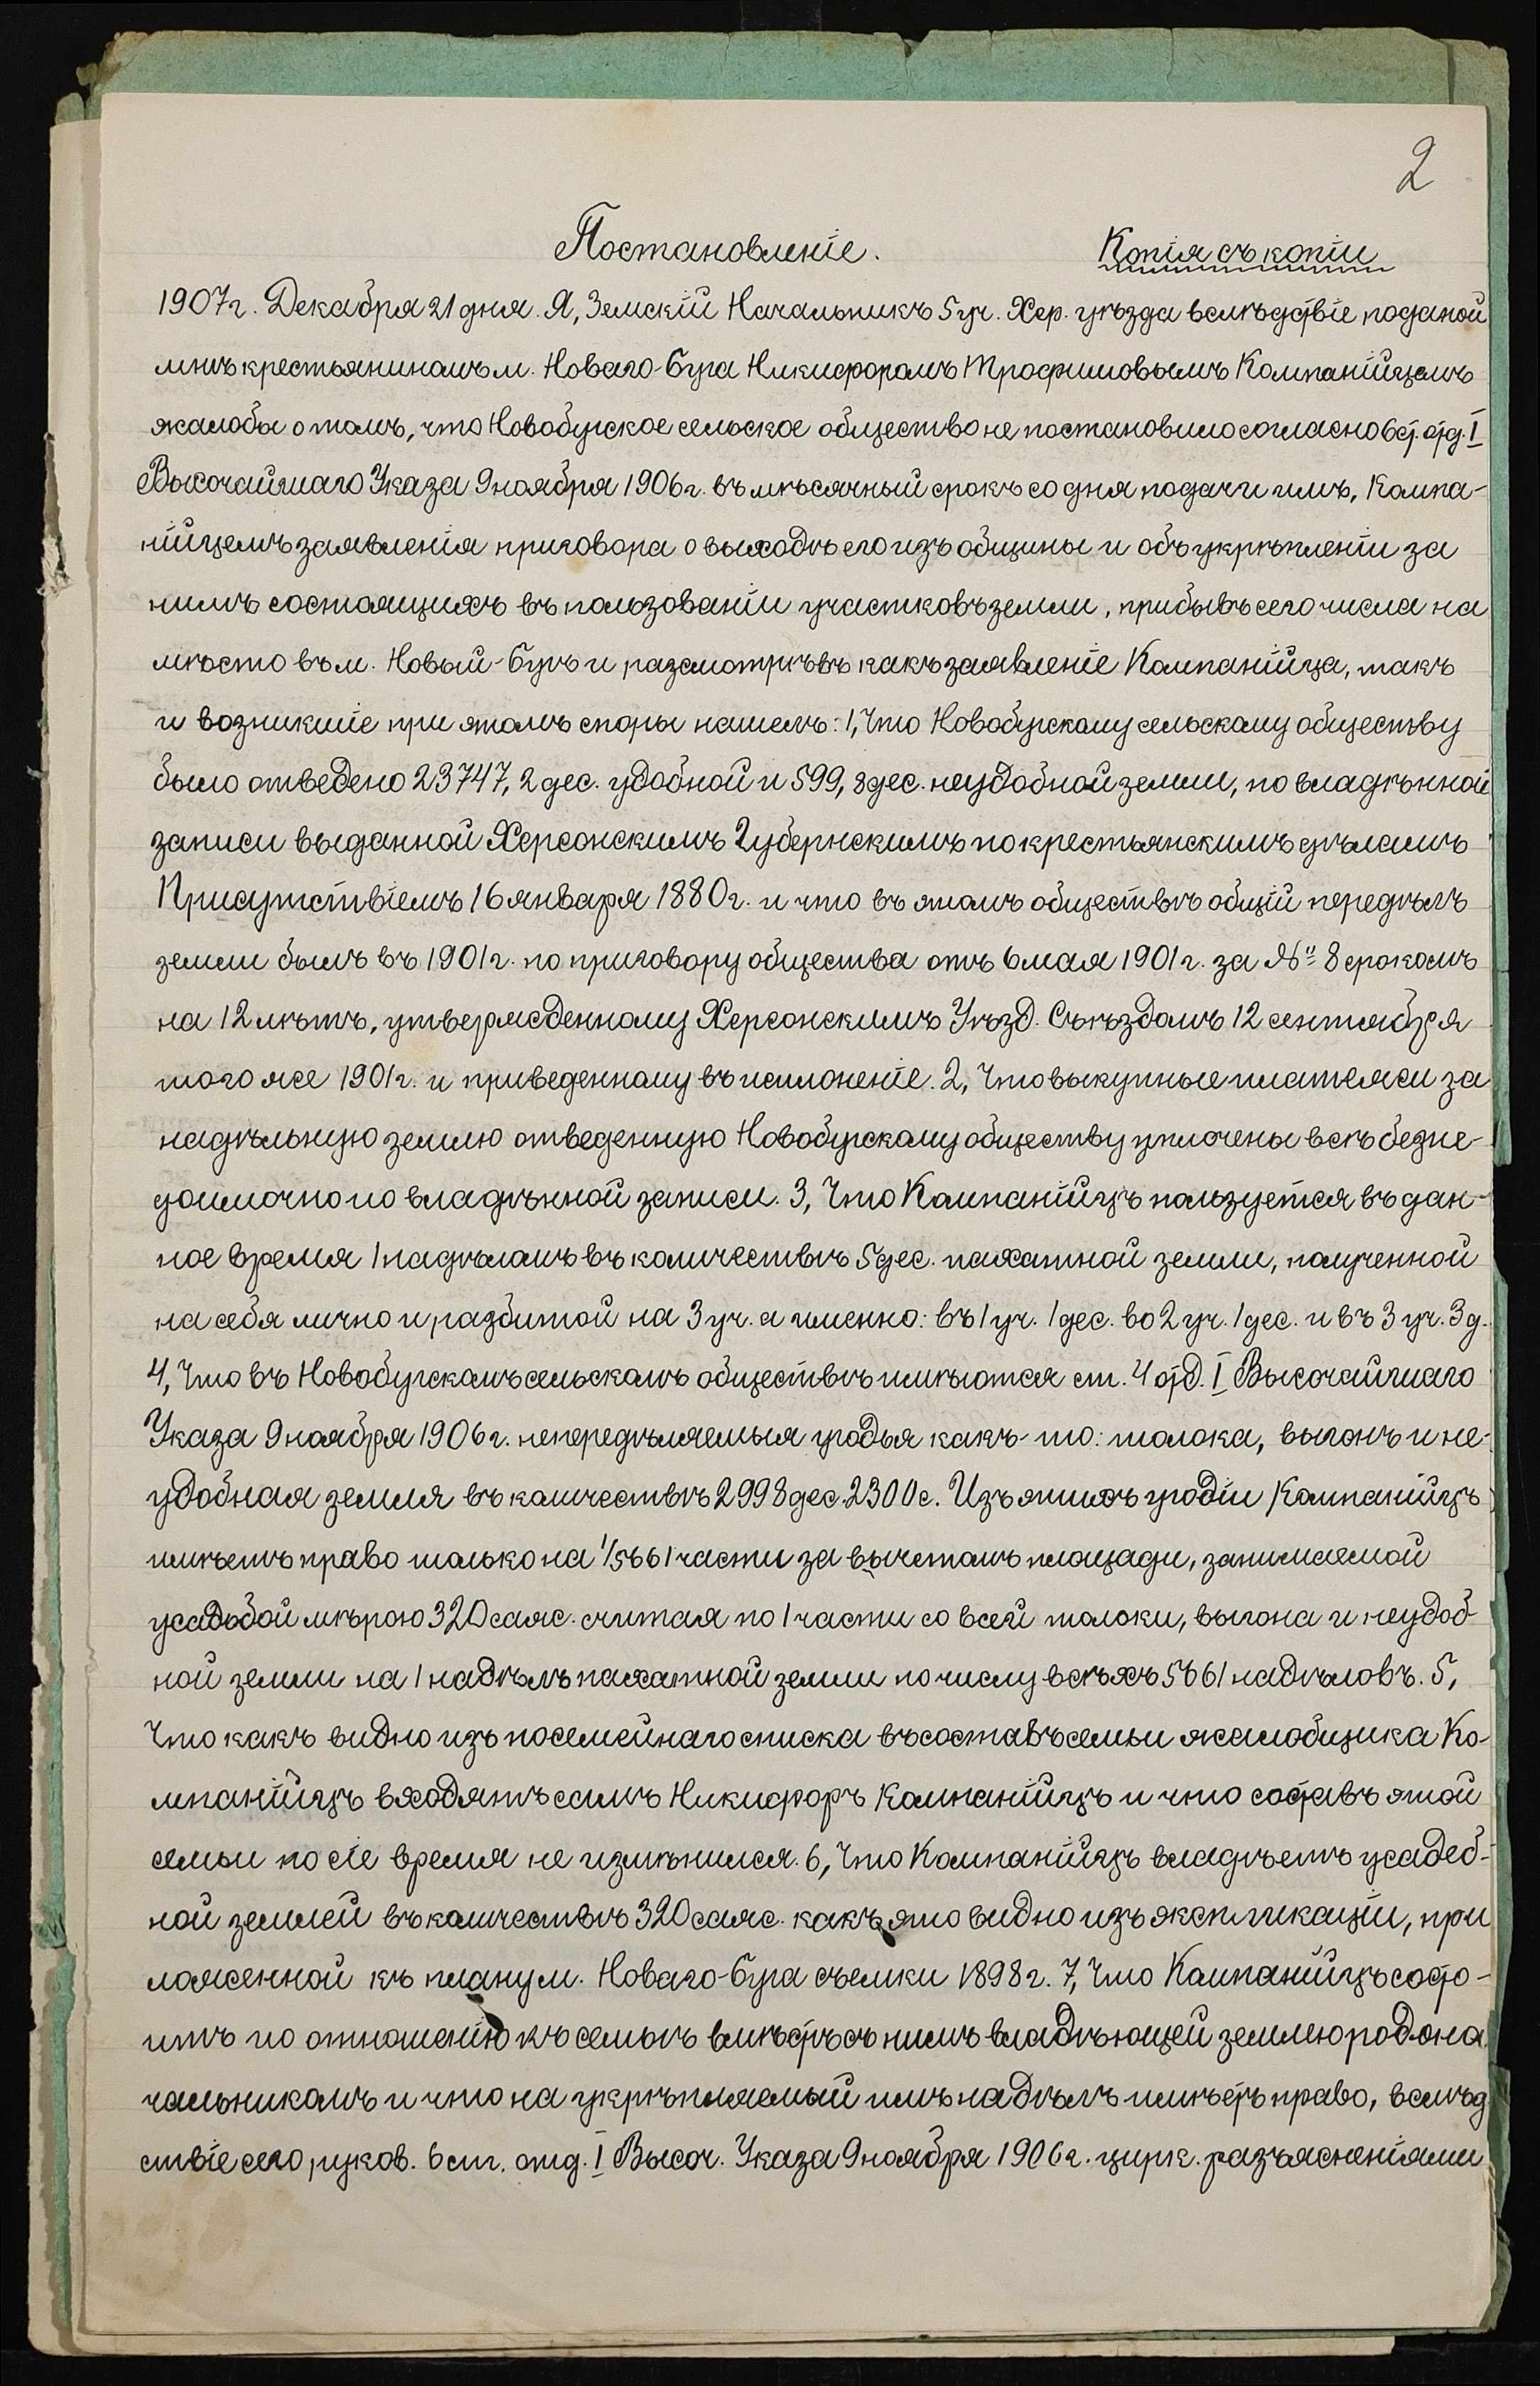 2
Постановленіе. Копія съ копіи
1907 г. Декабря 21 дня. Я, Земскій Начальникъ 5 уч. Хер. уѣзда вслѣдствіе поданой
мнѣ крестьяниномъ м. Новаго-Буга Никифоромъ Трофимовымъ Компанійцемъ
жалобы о томъ, что Новобугское сельское общество не постановило согласно 6 ст. отд. I
Высочайшаго Указа 9 ноября 1906 г. въ мѣсячный срокъ со дня подачи имъ, Компа-
нійцемъ заявленія приговора о выходѣ его изъ общины и объ укрѣпленіи за
нимъ состоящихъ въ пользованіи участковъ земли, прибывъ сего числа на
мѣсто въ м. Новый-Бугъ и разсмотрѣвъ какъ заявленіе Компанійца, такъ
и возникшіе при этомъ споры нашелъ: 1, Что Новобугскому сельскому обществу
было отведено 23747,2 дес. удобной и 599,8 дес. неудобной земли, по владѣнной
записи выданной Херсонскимъ Губернскимъ по крестьянскимъ дѣламъ
Присутствіемъ 16 января 1880 г. и что въ этомъ обществѣ общій передѣлъ
земли былъ въ 1901 г. по приговору общества отъ 6 мая 1901 г. за № 8 срокомъ
на 12 лѣтъ, утвержденному Херсонскимъ Уѣзд. Съѣздомъ 12 сентября
того же 1901 г. и приведенному въ исполненіе. 2, Что выкупные платежи за
надѣльную землю отведенную Новобугскому обществу уплочены всѣ безне-
доимочно по владѣнной записи. 3, Что Компаніицъ пользуется въ дан-
ное время 1 надѣломъ въ количествѣ 5 дес. пахатной земли, полученной
на себя лично и разбитой на 3 уч. а именно: въ 1 уч. 1 дес. во 2 уч. 1 дес. и въ 3 уч. 3 д.
4, Что въ Новобугскомъ сельскомъ обществѣ имѣются ст. 4 отд. I Высочайшаго
Указа 9 ноября 1906 г. непередѣляемыя угодья какъ-то: толока, выгонъ и не-
удобная земля въ количествѣ 2998 дес. 2300 с. Изъ этихъ угодій Компаніицъ
имѣетъ право только на 1/5661 части за вычетомъ площади, занимаемой
усадьбой мѣрою 320 саж. считая по 1 части со всей толоки, выгона и неудоб-
ной земли на 1 надѣлъ пахатной земли по числу всѣхъ 5661 надѣловъ. 5,
Что какъ видно изъ посемейнаго списка въ составъ семьи жалобщика Ко-
мпаніицъ входятъ самъ Никифоръ Компаніицъ и что составъ этой
семьи по сіе время не измѣнился. 6, Что Компаніицъ владѣетъ усадеб-
ной землей въ количествѣ 320 саж. какъ это видно изъ экспликаціи, при
ложенной къ плану м. Новаго-Буга съемки 1898 г. 7, Что Компаніицъ состо-
итъ по отношенію къ семьѣ вмѣстѣ съ нимъ владѣющей землею родона
чальникомъ и что на укрѣпляемый имъ надѣлъ имѣетъ право, вслѣд
ствіе сего, руков. 6 ст. отд. I Высоч. Указа 9 ноября 1906 г. цирк. разъясненіями